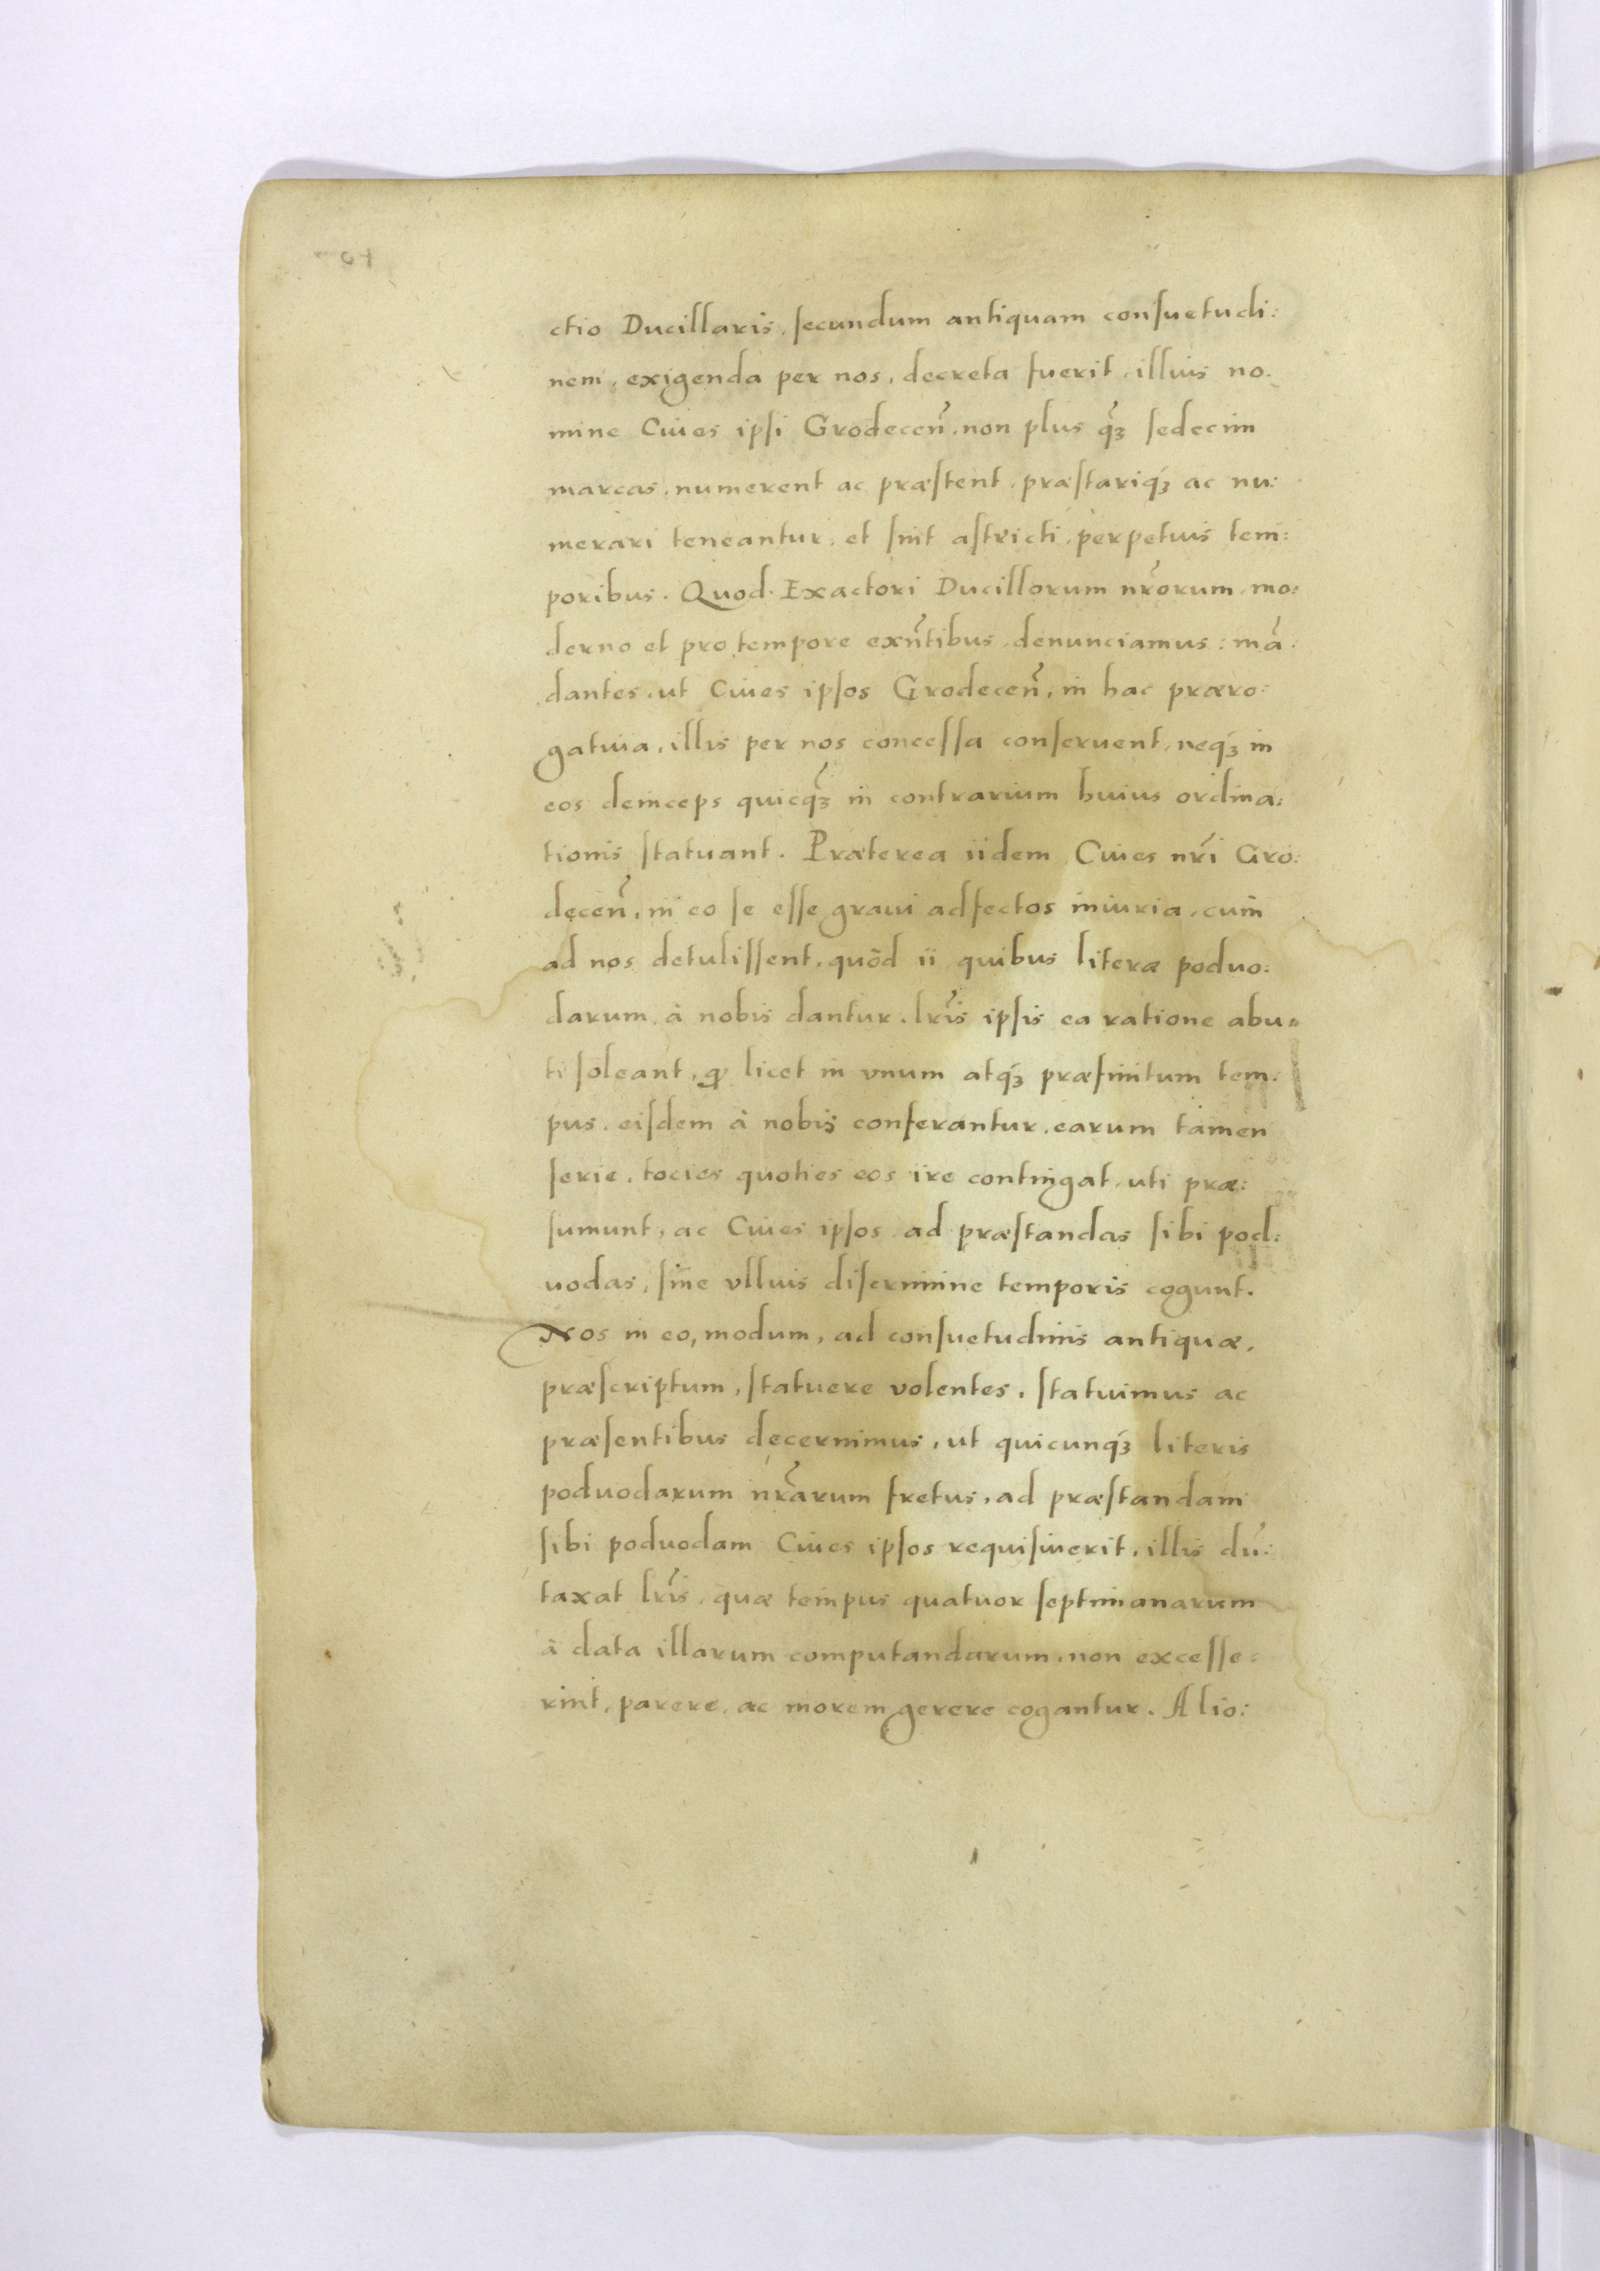 ctio Ducillaris, ſecundum antiquam conſuetudi:
nem, exigenda per nos, decreta fuerit, illius no.
mine Ciues ipſi Grodeceñ. non plus q̃ꝫ ſedecim
marcas, numerent ac præſtent, præſtariqꝫ́ ac nu:
merari teneantur, et ſint aſtricti, perpetuis tem:
poribus. Quod Exactori Ducillorum nr̃orum, mo:
derno et pro tempore exñtibus, denunciamus: mã:
dantes, ut Ciues ipſos Grodeceñ, in hac præro:
gatiua, illis per nos conceſſa conſeruent, neqꝫ́ in
eos deinceps quicq̃ꝫ in contrarium huius ordina:
tionis ſtatuant. Præterea iidem Ciues nr̃i Gro:
deceñ, in eo ſe eſſe graui adfectos iniuria, cum
ad nos detuliſſent, quòd ii quibus literæ poduo:
darum à nobis dantur, lr̃is ipſis ea ratione abu=
ti ſoleant, ꝙ licet in vnum atqꝫ́ præfinitum tem:
pus, eiſdem à nobis conferantur, earum tamen
ſerie, tocies quoties eos ire contingat, uti præ:
ſumunt, ac Ciues ipſos ad præſtandas ſibi pod:
uodas, ſine vllius diſcrimine temporis cogunt.
Nos in eo, modum, ad conſuetudinis antiquæ,
præſcriptum, ſtatuere volentes, ſtatuimus ac
præſentibus decernimus, ut quicunqꝫ́ literis
poduodarum nr̃arum fretus, ad præſtandam
ſibi poduodam Ciues ipſos requiſiuerit, illis dũ:
taxat lr̃is, quæ tempus quatuor ſeptimanarum
à data illarum computandarum, non exceſſe:
rint, parere, ac morem gerere cogantur. Alio: